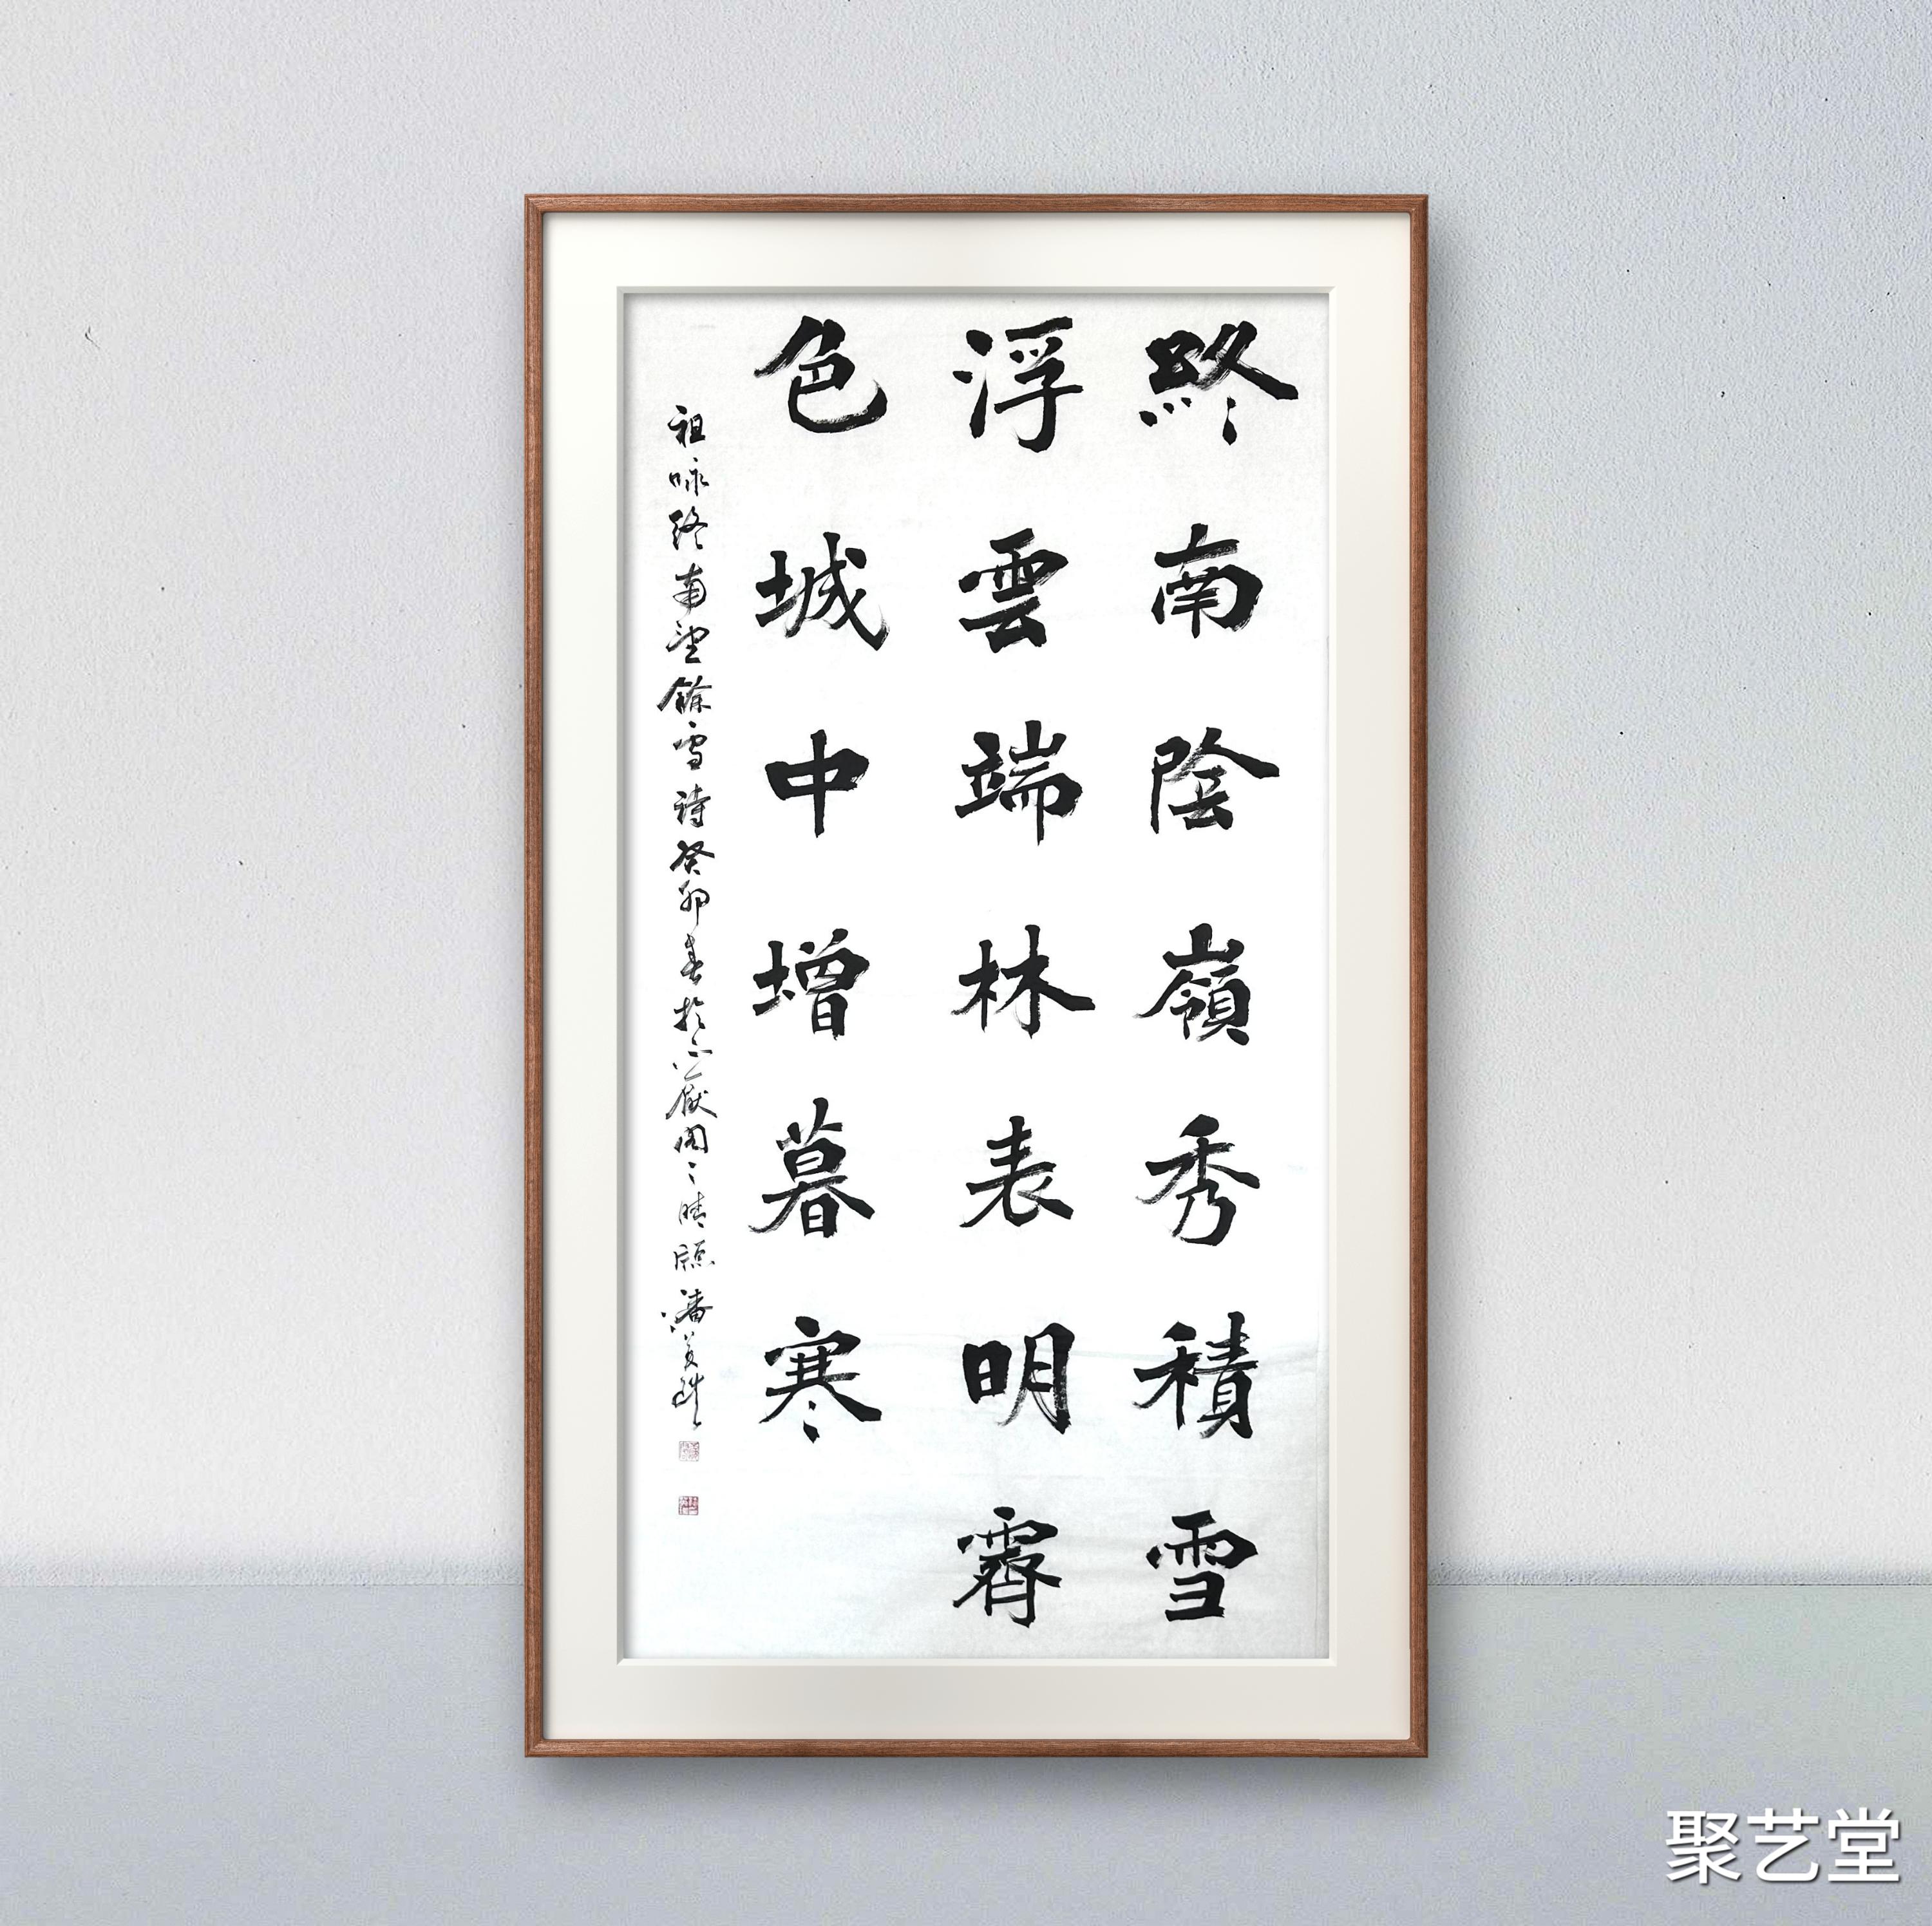 終南陰嶺秀積雪
浮雲端林表明霽
色城中增暮寒
祖咏終南望餘雪詩癸卯春於心厭閣之晴照潘
聚艺堂